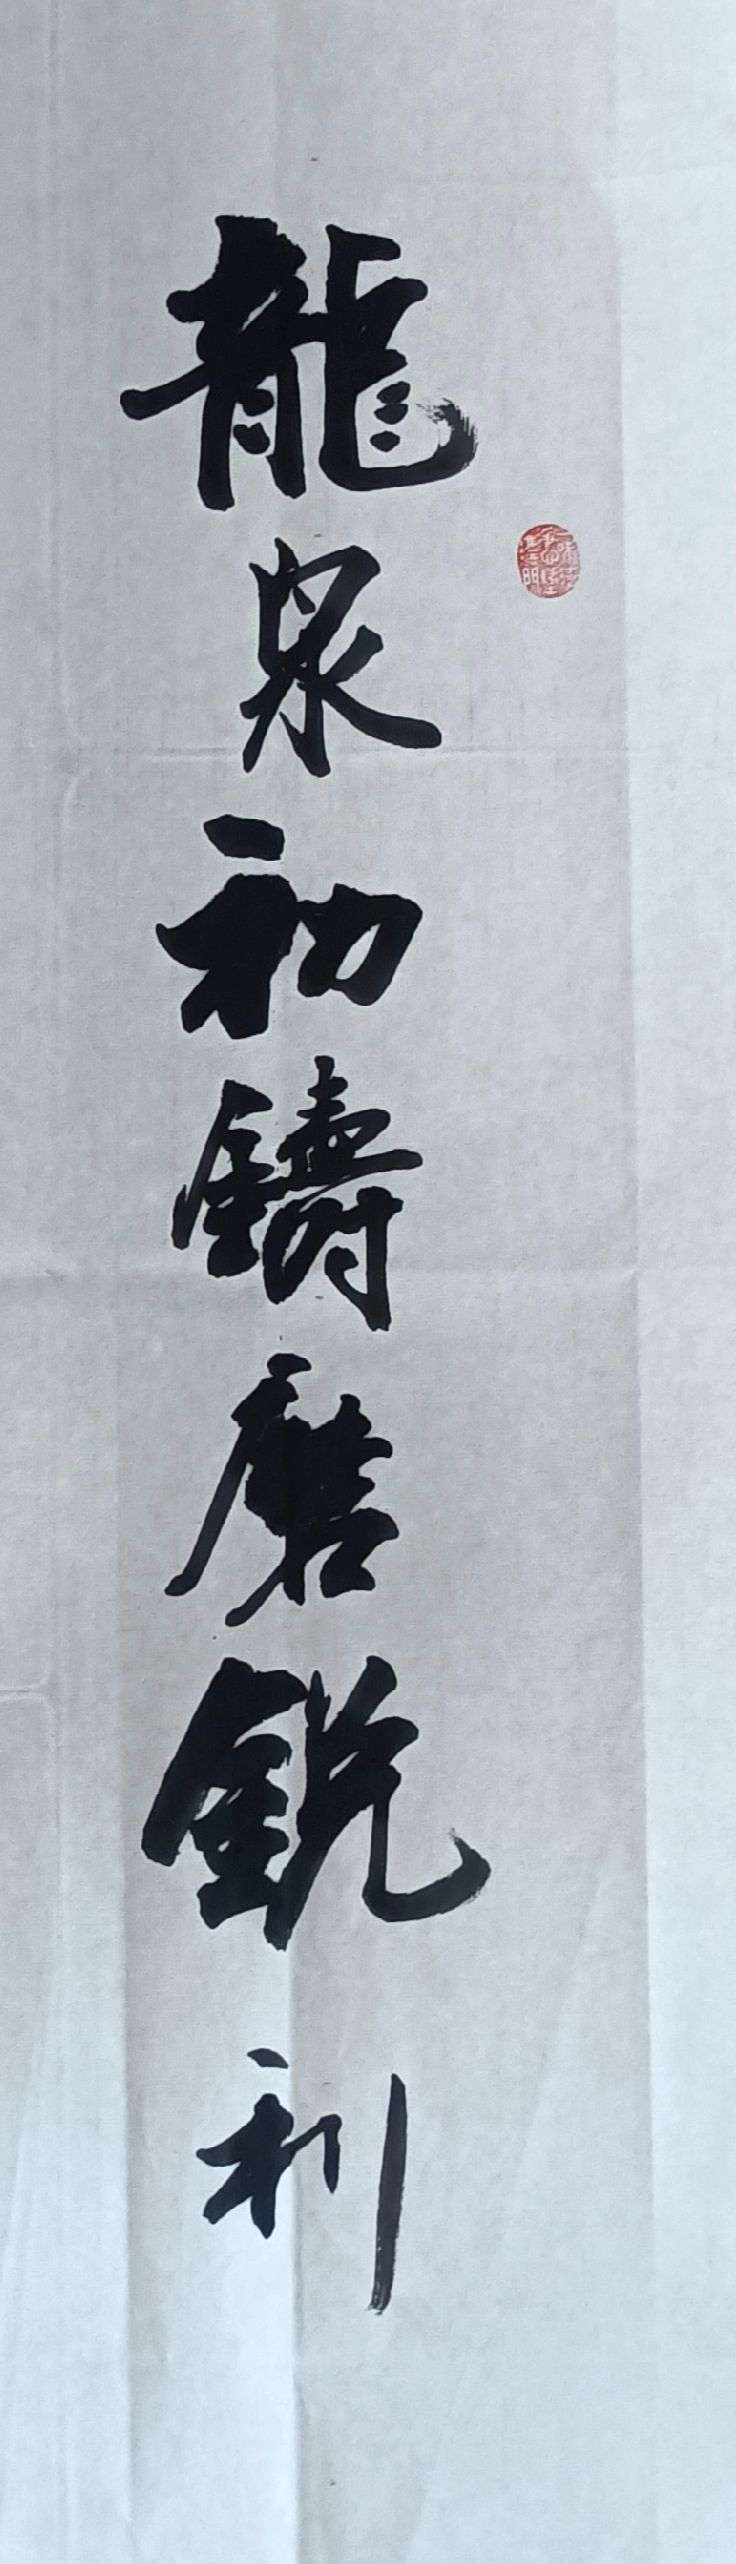 龍泉初鑄磨銳利